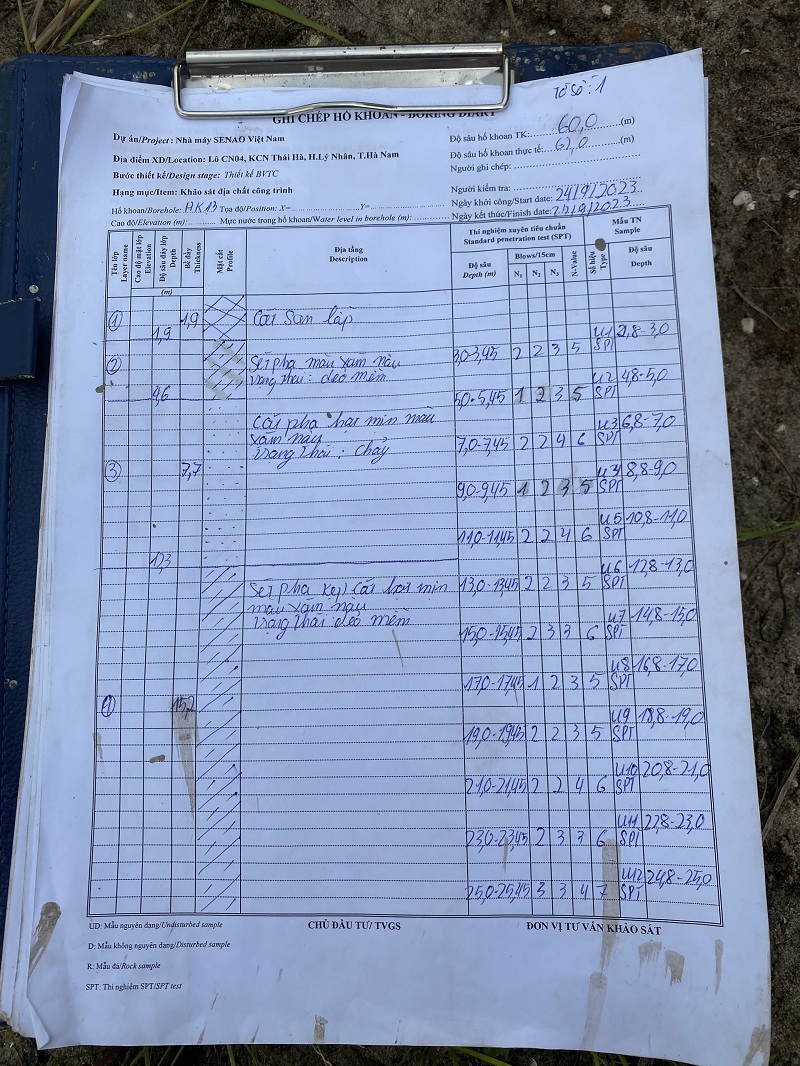 Tờ số: 1
GHI CHÉP HỐ KHOAN - BORING DIARY
Dự án/Project: Nhà máy SENAO Việt Nam
Địa điểm XD/Location: Lô CN04, KCN Thái Hà, H.Lý Nhân, T.Hà Nam
Bước thiết kế/Design stage: Thiết kế BVTC
Hạng mục/Item: Khảo sát địa chất công trình
Độ sâu hố khoan TK: 60,0 (m)
Độ sâu hố khoan thực tế: 62,0 (m)
Người ghi chép:
Người kiểm tra:
Hố khoan/Borehole: HK13 Tọa độ/Position: X= Y= Ngày khởi công/Start date: 24/9/2023
Cao độ/Elevation (m): Mực nước trong hố khoan/Water level in borehole (m): Ngày kết thúc/Finish date:
Tên lớp Layer name
Cao độ mặt lớp Elevation
Độ sâu đáy lớp Depth
Bề dày Thickness
(m)
Mặt cắt Profile
Địa tầng
Description
Thí nghiệm xuyên tiêu chuẩn
Standard penetration test (SPT)
Độ sâu Depth (m)
Blows/15cm
N1 N2 N3
N-Value
Mẫu TN
Sample
Số hiệu Type
Độ sâu
Depth
1 1,9 Cát San lấp
1,9
U1 2,8-3,0
3,0-3,45 2 2 3 5 SPT
2 Sét pha màu xám nâu
trạng thái: dẻo mềm
4,6
U2 4,8-5,0
5,0-5,45 1 2 3 5 SPT
Cát pha hạt mịn màu
xám nâu
trạng thái: chảy
U3 6,8-7,0
7,0-7,45 2 2 4 6 SPT
3 7,7
U4 8,8-9,0
9,0-9,45 1 2 3 5 SPT
U5 10,8-11,0
11,0-11,45 2 2 4 6 SPT
12,3
U6 12,8-13,0
Sét pha kẹp cát hạt mịn
màu xám nâu
trạng thái dẻo mềm
13,0-13,45 2 2 3 5 SPT
U7 14,8-15,0
15,0-15,45 2 3 3 6 SPT
U8 16,8-17,0
17,0-17,45 1 2 3 5 SPT
4 15,2
U9 18,8-19,0
19,0-19,45 2 2 3 5 SPT
U10 20,8-21,0
21,0-21,45 2 2 4 6 SPT
U11 22,8-23,0
23,0-23,45 2 3 3 6 SPT
U12 24,8-25,0
25,0-25,45 3 3 4 7 SPT
UD: Mẫu nguyên dạng/Undisturbed sample
D: Mẫu không nguyên dạng/Disturbed sample
R: Mẫu đá/Rock sample
SPT: Thí nghiệm SPT/SPT test
CHỦ ĐẦU TƯ/ TVGS
ĐƠN VỊ TƯ VẤN KHẢO SÁT